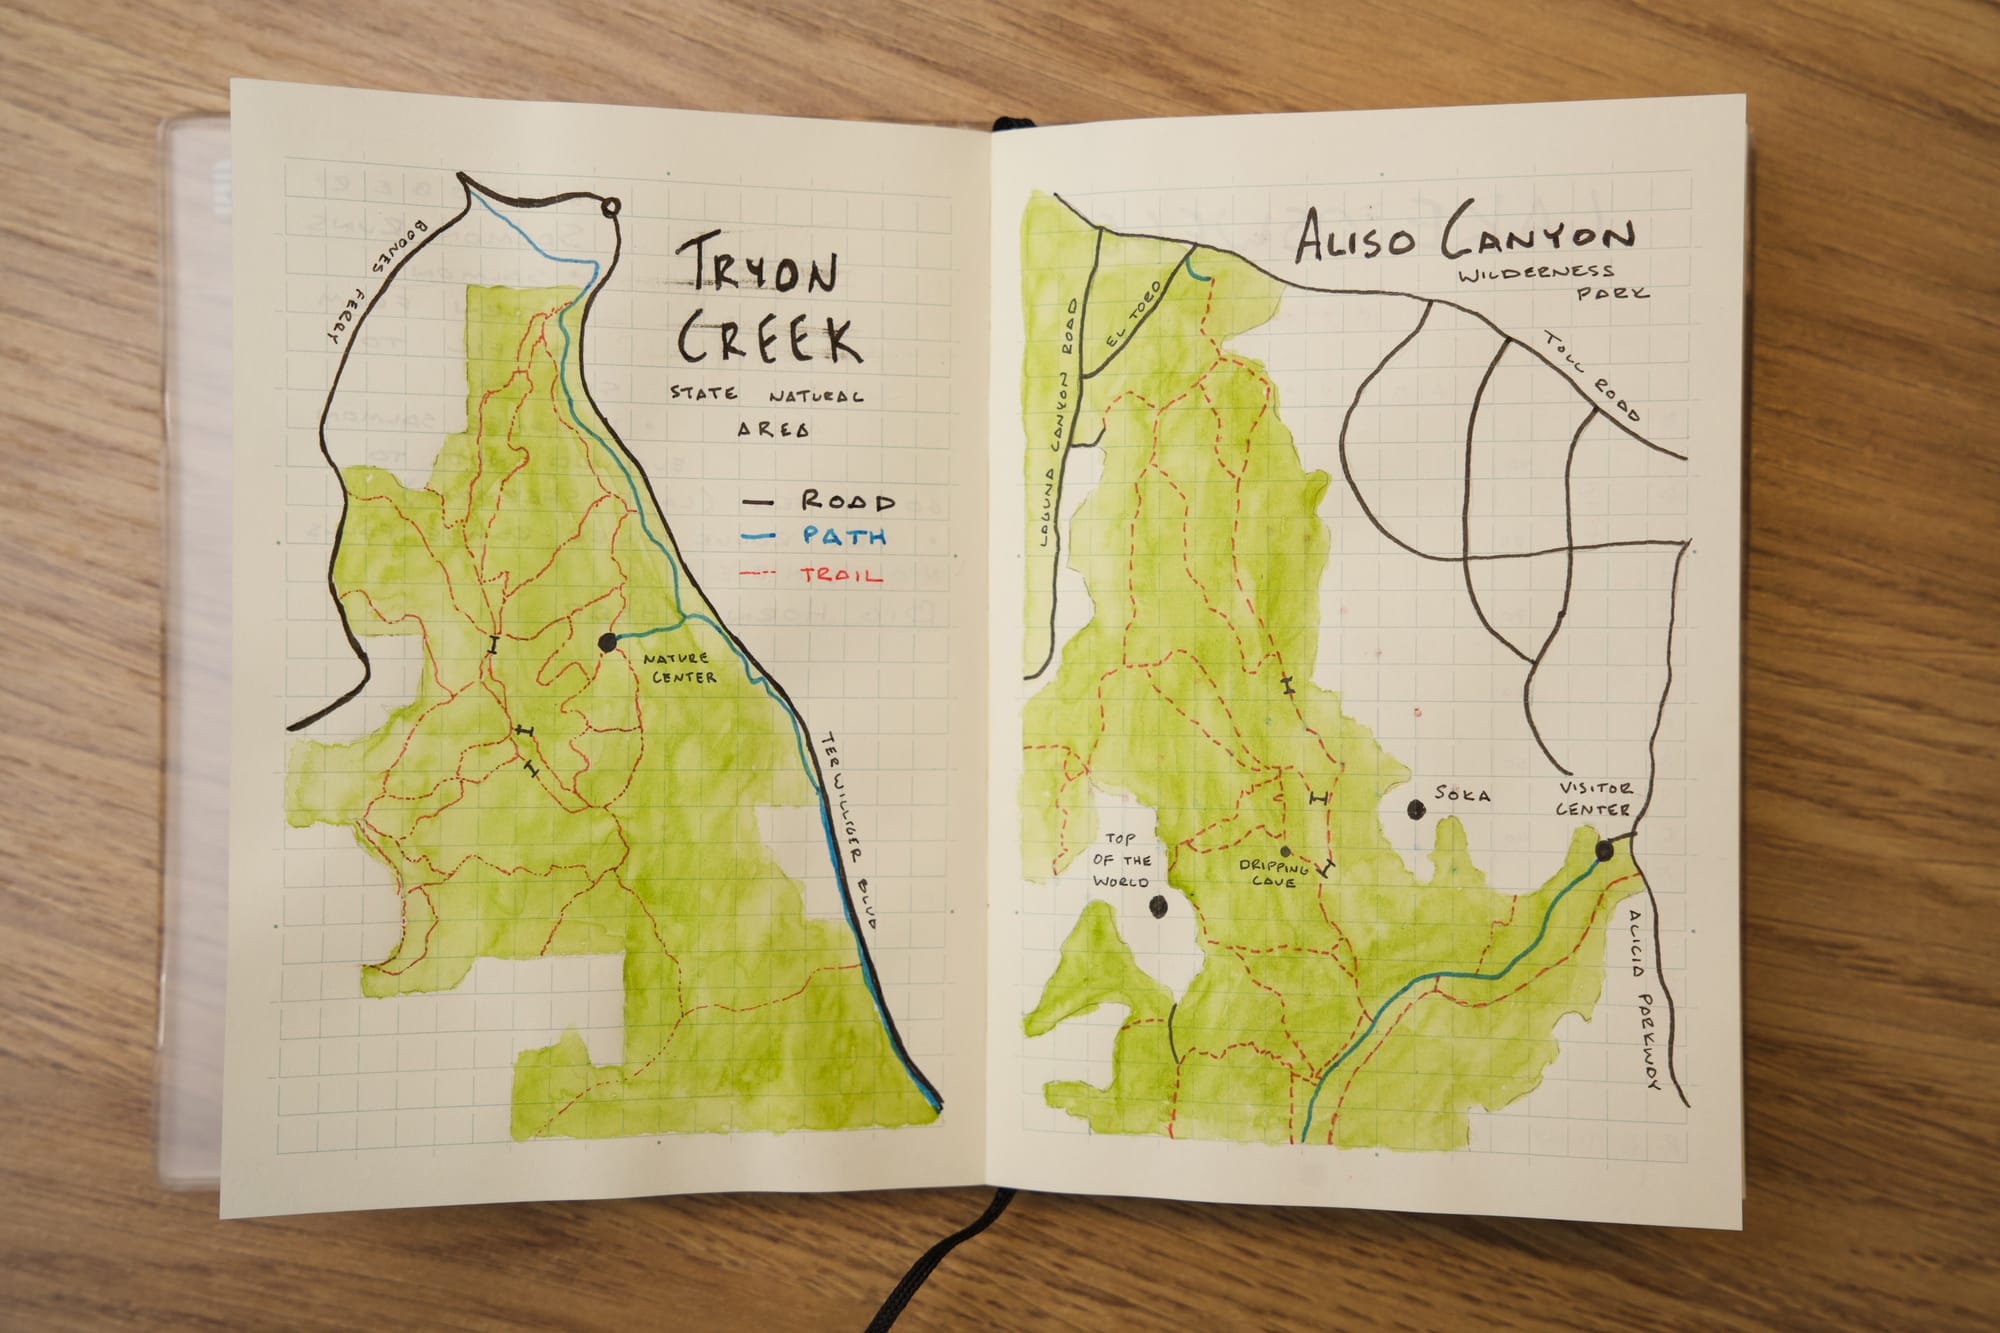 BOONES FERRY
TRYON
CREEK
STATE NATURAL
AREA
ROAD
PATH
TRAIL
NATURE
CENTER
TERWILLIGER BLVD
ALISO CANYON
WILDERNESS
PARK
LAGUNA CANYON ROAD
EL TORO
TOLL ROAD
SOKA
VISITOR
CENTER
TOP
OF THE
WORLD
DRIPPING
CAVE
ALICIA PARKWAY